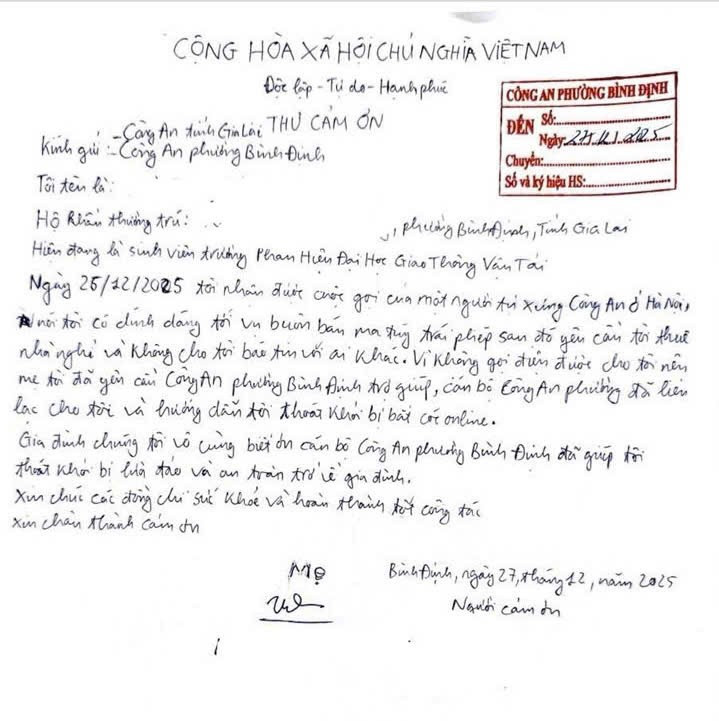 CỘNG HÒA XÃ HỘI CHỦ NGHĨA VIỆT NAM
Độc lập - Tự do - Hạnh phúc
THƯ CẢM ƠN
CÔNG AN PHƯỜNG BÌNH ĐỊNH
ĐẾN Số:
Ngày: 27/12/2025
Chuyển:
Số và ký hiệu HS:
Kính gửi: - Công An tỉnh Gia Lai
- Công An phường Bình Định
Tôi tên là:
Hộ khẩu thường trú: , phường Bình Định, Tỉnh Gia Lai
Hiện đang là sinh viên trường Phân Hiệu Đại Học Giao Thông Vận Tải
Ngày 25/12/2025 tôi nhận được cuộc gọi của một người tự xưng Công An ở Hà Nội,
nói tôi có dính dáng tới vụ buôn bán ma túy trái phép sau đó yêu cầu tôi thuê
nhà nghỉ và không cho tôi báo tin với ai khác. Vì không gọi điện được cho tôi nên
mẹ tôi đã yêu cầu Công An phường Bình Định trợ giúp, cán bộ Công An phường đã liên
lạc cho tôi và hướng dẫn tôi thoát khỏi bị bắt cóc online.
Gia đình chúng tôi vô cùng biết ơn cán bộ Công An phường Bình Định đã giúp tôi
thoát khỏi bị lừa đảo và an toàn trở về gia đình.
Xin chúc các đồng chí sức khỏe và hoàn thành tốt công tác
Xin chân thành cảm ơn
Bình Định, ngày 27, tháng 12, năm 2025
Mẹ
Người cảm ơn